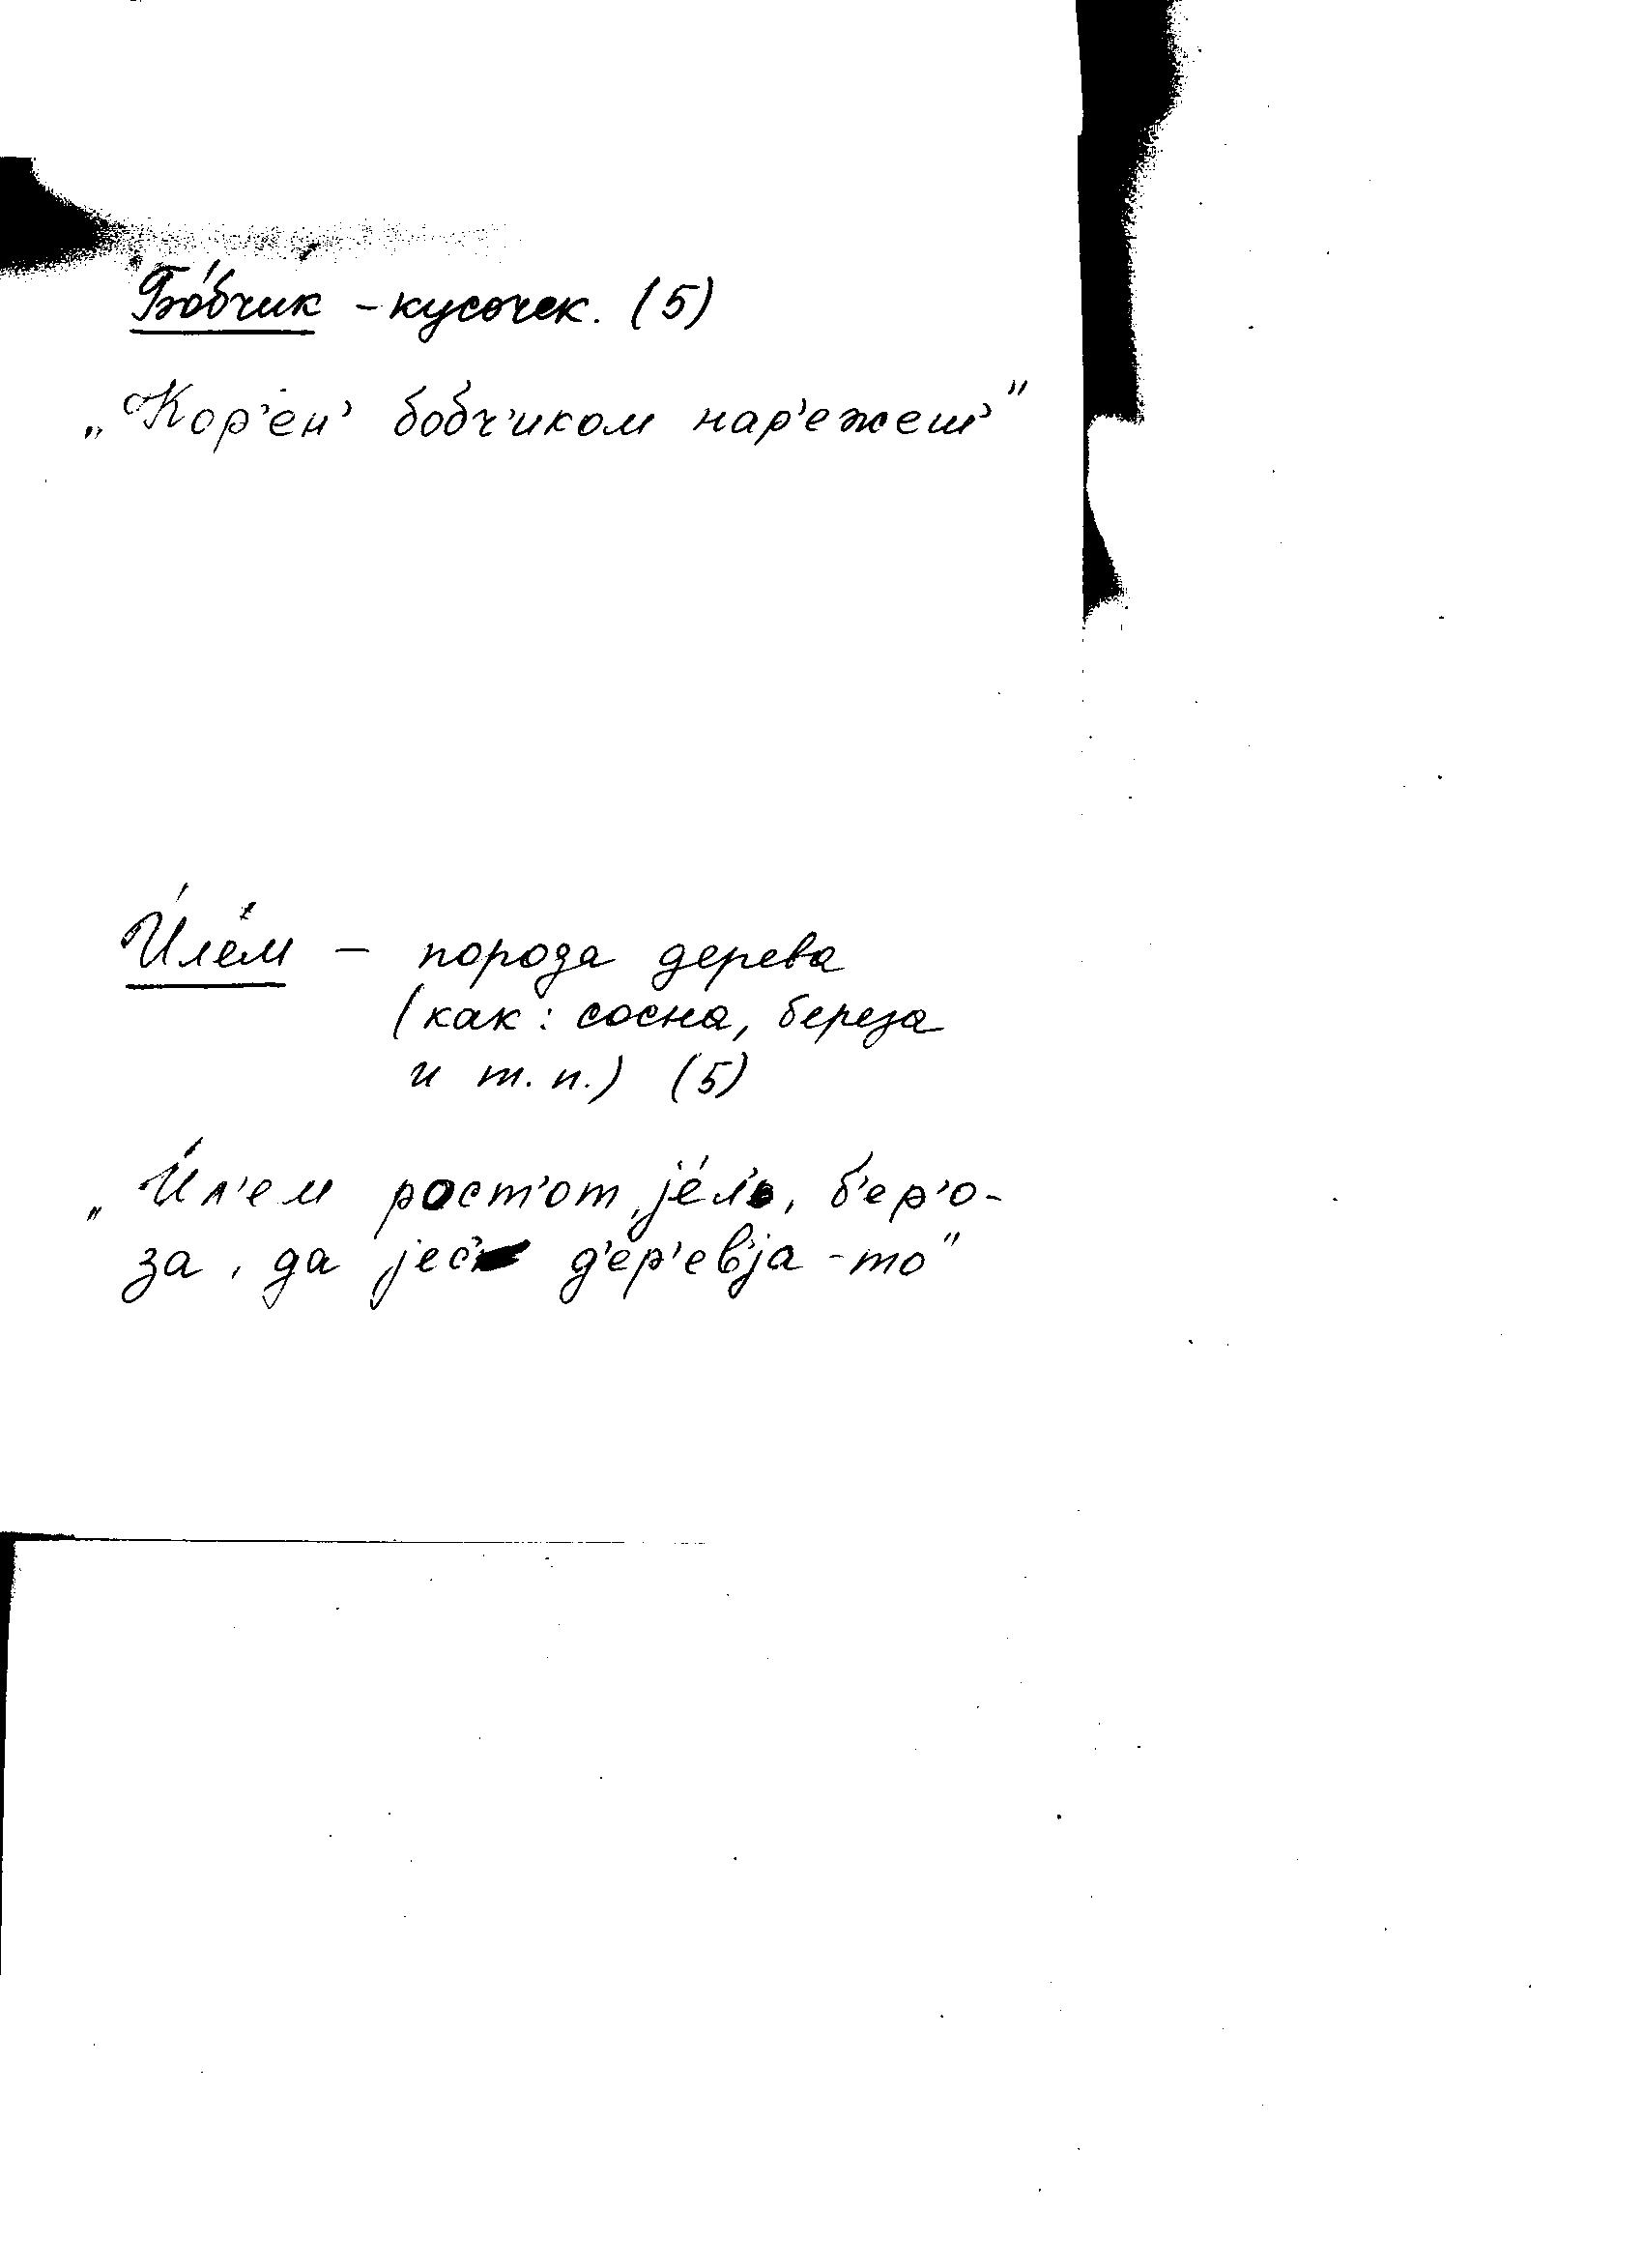 Бо́бчик – кусочек. (5)
„Кор'ен' бобч'иком нар'ежеш'"
И́лем – порода дерева
(как: сосна, береза
и т.п.) (5)
„И́л'ем рост'от, је́л', б'ер'о-
за, да јес' д'ер'евја-то"